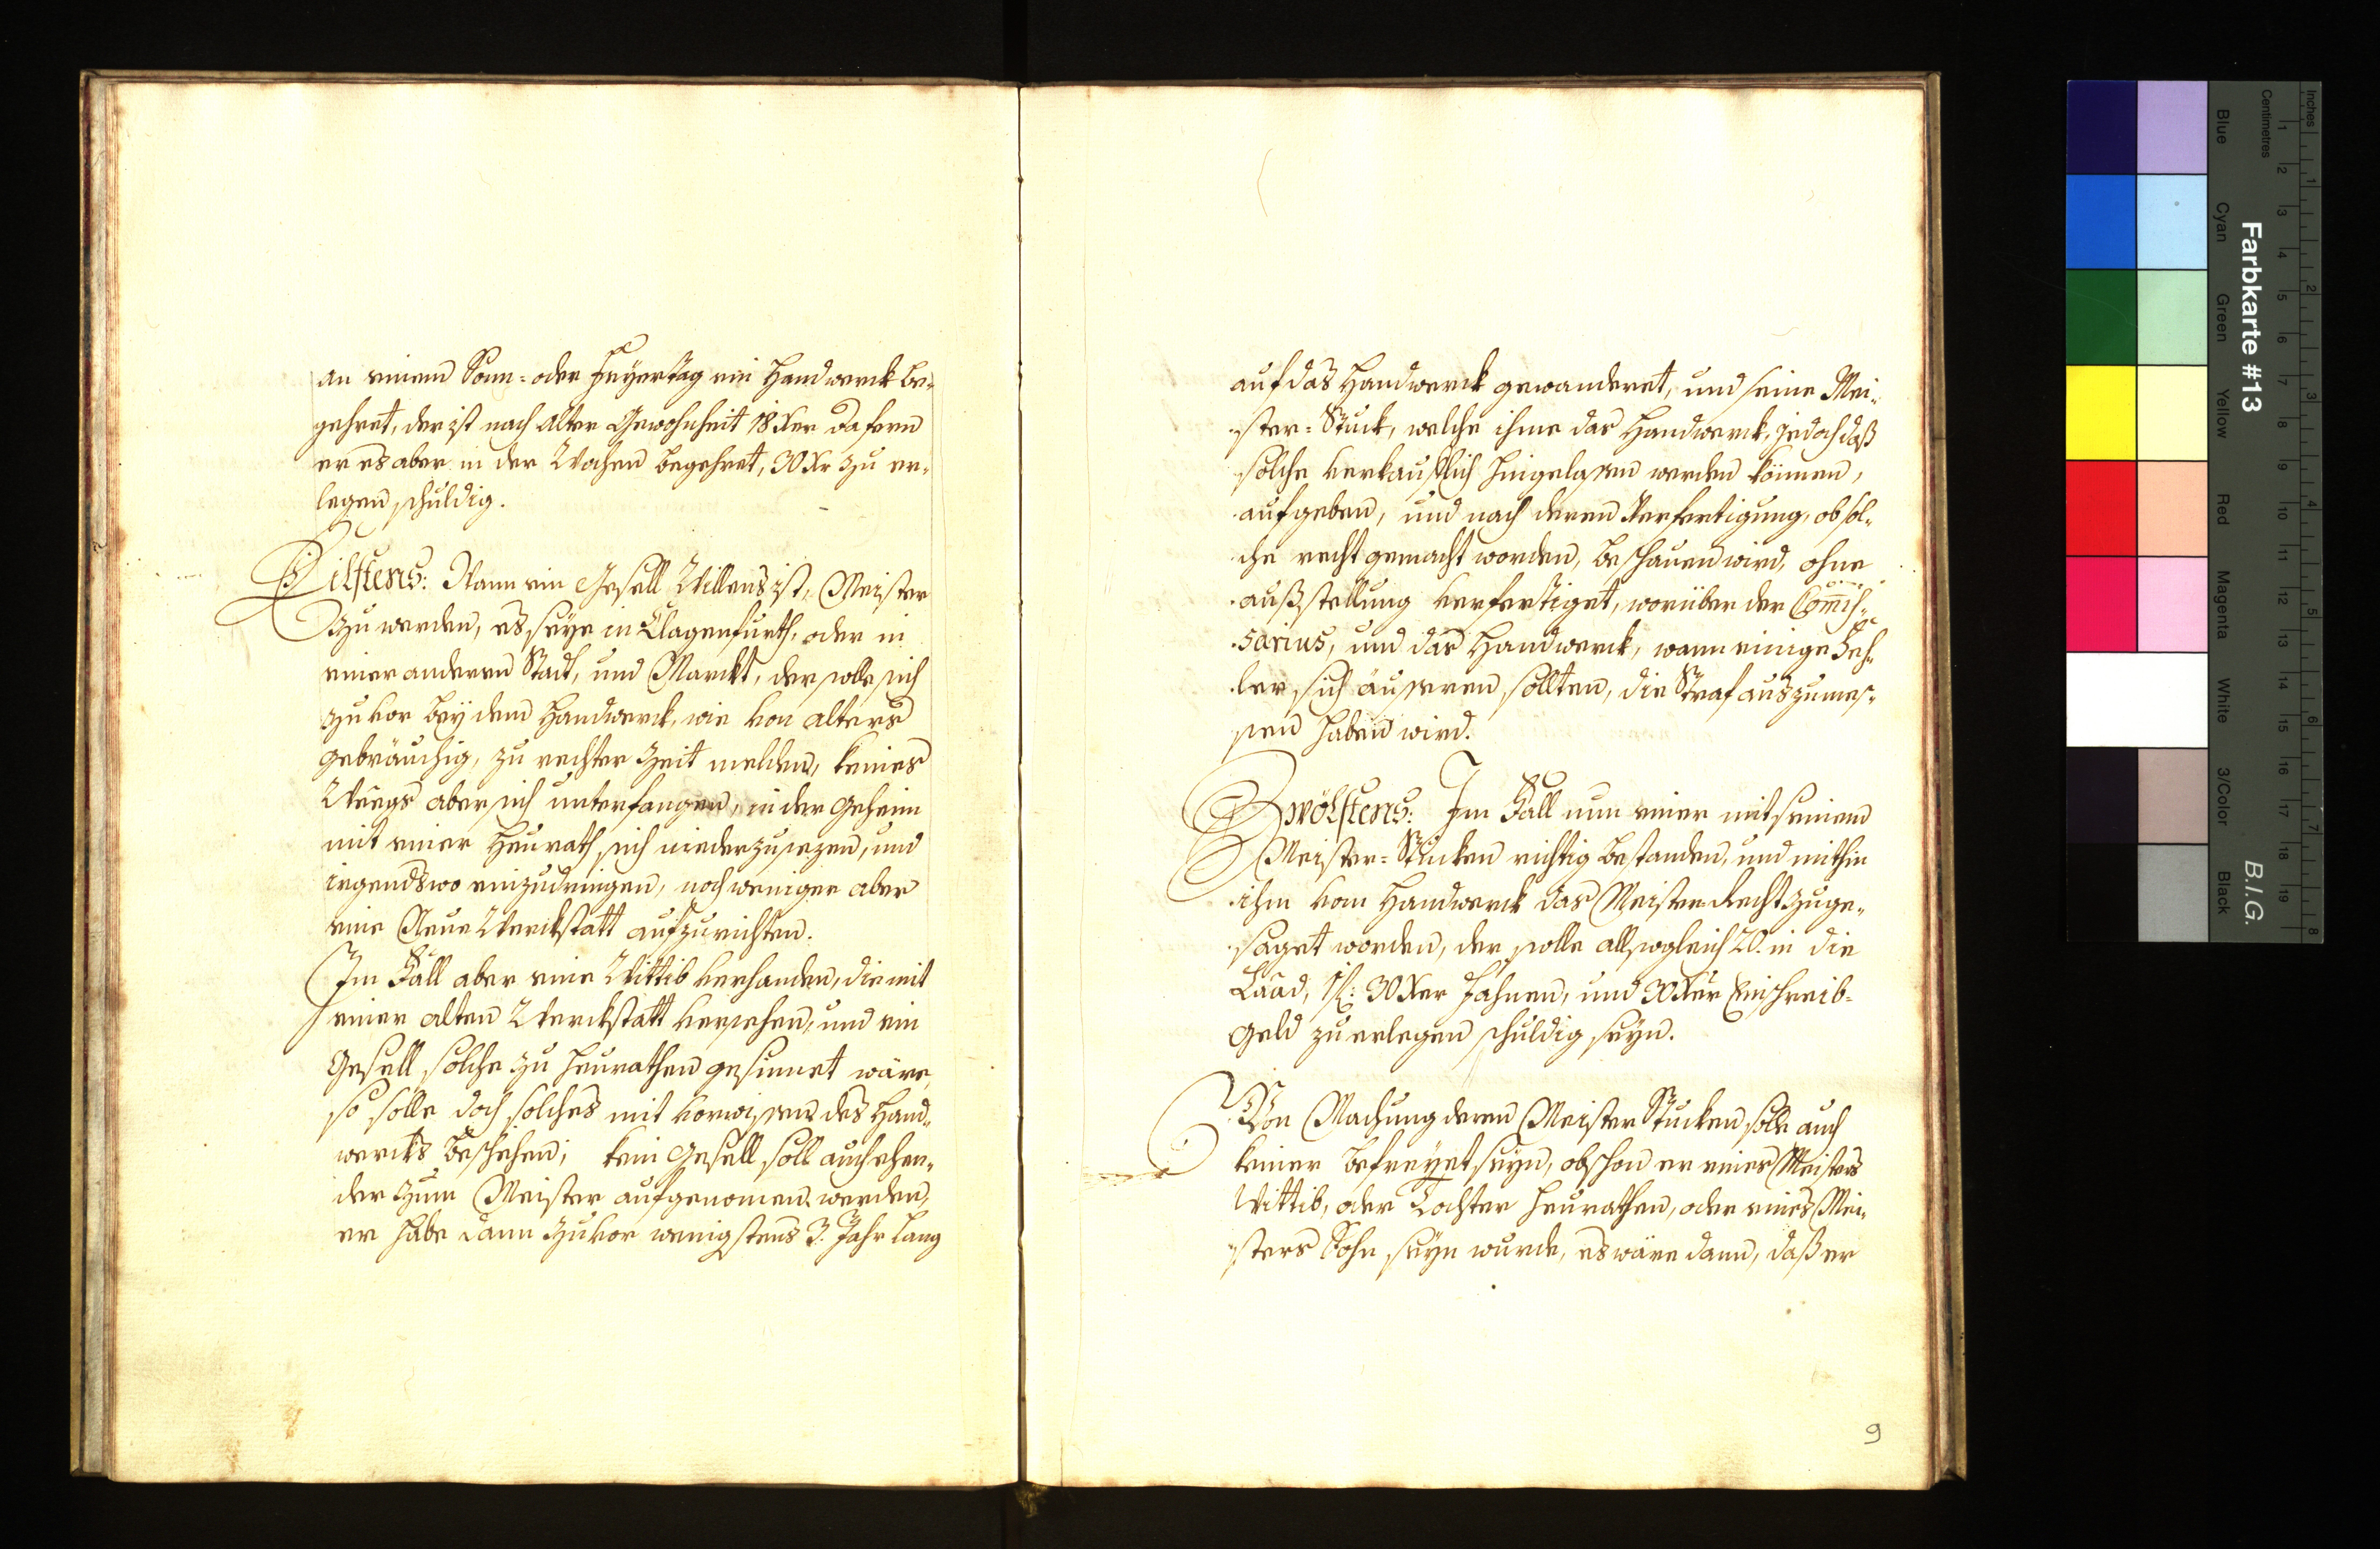 an einem Sonn- oder Feyertag ein Handwerck be-
gehret, der ist nach alter Gewohnheit 18 Xer dafern
er es aber in der Wochen begehret, 30 Xr zu er-
legen schuldig.
Eilftens: Wann ein Gesell Willens ist, Meister
zu werden, es seye in Clagenfurth, oder in
einer anderen Stadt, und Marckt, der solle sich
zuvor bey dem Handwerck, wie von alters
gebräuchig, zu rechter Zeit melden, keines
Weegs aber sich unterfangen, in der Geheim
mit einer Heurath sich niederzusezen, und
irgendswo einzudringen, noch weniger aber
eine Neue Werckstatt aufzurichten.
Im Fall aber eine Wittib verhanden, die mit
einer alten Werckstatt versehen, und ein
Gesell solche zu heurathen gesinnet wäre,
so solle doch solches mit vorwissen des Hand-
wercks beschehen; kein Gesell soll auch ehen-
der zum Meister aufgenomen werden,
er habe dann zuvor wenigstens 3. Jahr lang
auf das Handwerck gewanderet, und seine Mei-
ster-Stuck, welche ihme das Handwerck, jedoch daß
solche verkäufflich hingelassen werden können,
aufgeben, und nach deren Verfertigung, ob sol-
che recht gemacht worden, beschauen wird, ohne
außstellung verfertiget, worüber der Com̄is-
sarius, und das Handwerck, wann einige Feh-
ler sich äusseren sollten, die Straf auszumes-
sen haben wird.
Zwölftens: Im Fall nun einer mit seinem
Meister-Stucken richtig bestanden, und mithin
ihm vom Handwerck das Meister Recht zuge-
saget worden, der solle allsogleich 20. in die
Laad, 1 fl: 30 Xer Fahnen, und 30 Xer Einschreib-
Geld zu erlegen schuldig seyn.
Von Machung deren Meister Stucken solle auch
keiner befreyet seyn, obschon er eines Meisters
Wittib, oder Tochter heurathen, oder eines Mei-
sters Sohn seyn wurde, es wäre dann, daß er
9
Inches
Centimetres
Farbkarte #13
B.I.G.
Blue
Cyan
Green
Yellow
Red
Magenta
White
3/Color
Black
1 2 3 4 5 6 7 8 9 10 11 12 13 14 15 16 17 18 19
1 2 3 4 5 6 7 8